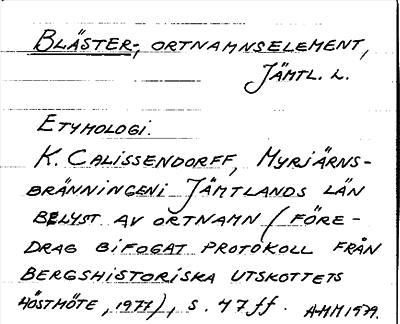 BLÄSTER-, ORTNAMNSELEMENT,
JÄMTL. L.
ETYMOLOGI.
K. CALISSENDORFF, MYRJÄRNS-
BRÄNNINGENI JÄMTLANDS LÄN
BELYST AV ORTNAMN (FÖRE-
DRAG BIFOGAT PROTOKOLL FRÅN
BERGSHISTORISKA UTSKOTTETS
HÖSTMÖTE, 1977), S. 47 ff. AMM 1979.